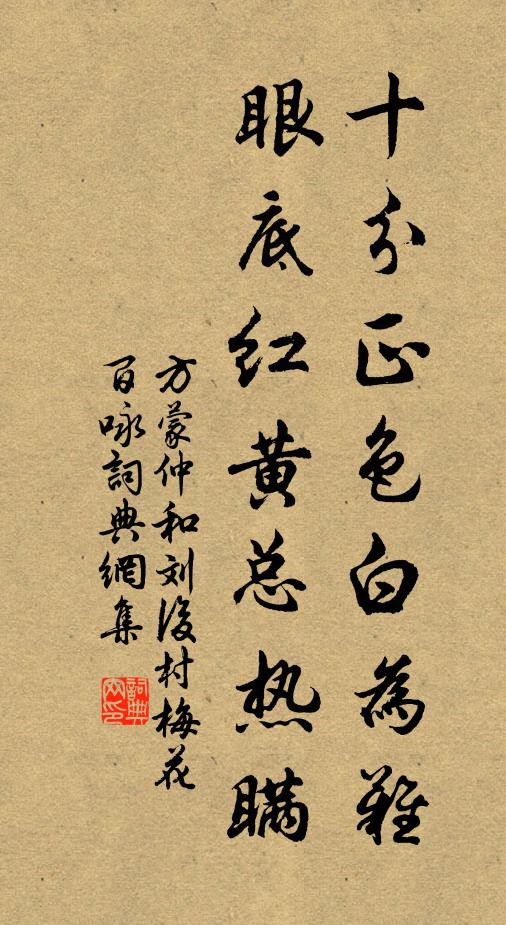 十分正色白為難
眼底红黄总热瞒
方蒙仲和刘後村梅花
百咏詞典網集
詞典网印